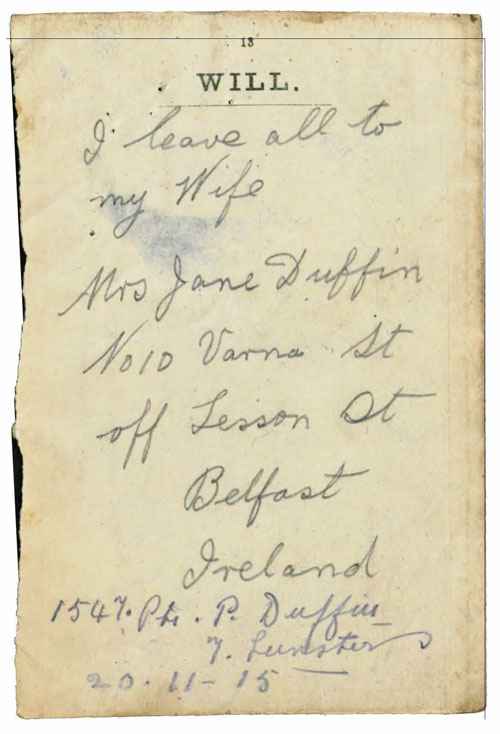 13
WILL.
I leave all to
my Wife
Mrs Jane Duffin
No 10 Varna St
off Lesson St
Belfast
Ireland
1547. Pte. P. Duffin
7. Leinsters
20-11-15